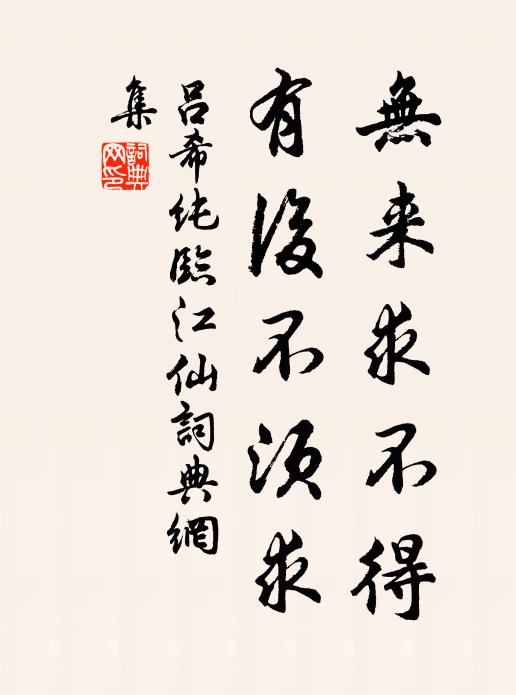 無来求不得
有後不須求
呂希純臨江仙詞典網
集
詞典
网印